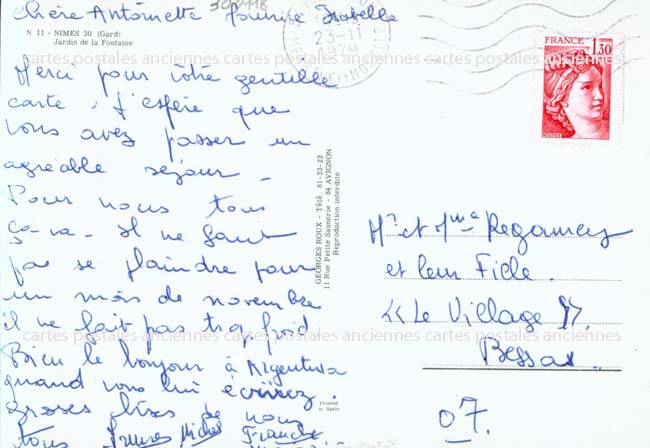 Chère Antoinette Isabelle
308118
N 11 - NIMES 30 (Gard)
Jardin de la Fontaine
23-11
1979
FRANCE
1,30
POSTES
cartes postales anciennes cartes postales anciennes cartes postales anciennes
Merci pour votre gentille
carte, J'espère que
vous avez passer un
agréable séjour -
Pour nous tous
ça-va - Il ne faut
pas se plaindre pour
un mois de novembre
il ne fait pas trop froid
Bien le bonjour à
quand vous lui écrirez.
Grosses bises de nous
tous Michel
GEORGES ROUX - Télé. 81-33-22
11 Rue Petite Saunerie - 84 AVIGNON
Reproduction interdite
Printed
in Spain
Mr et Mme Regamey
et leur Fille
"Le Village"
Bessas.
07.
cartes postales anciennes cartes postales anciennes cartes postales anciennes